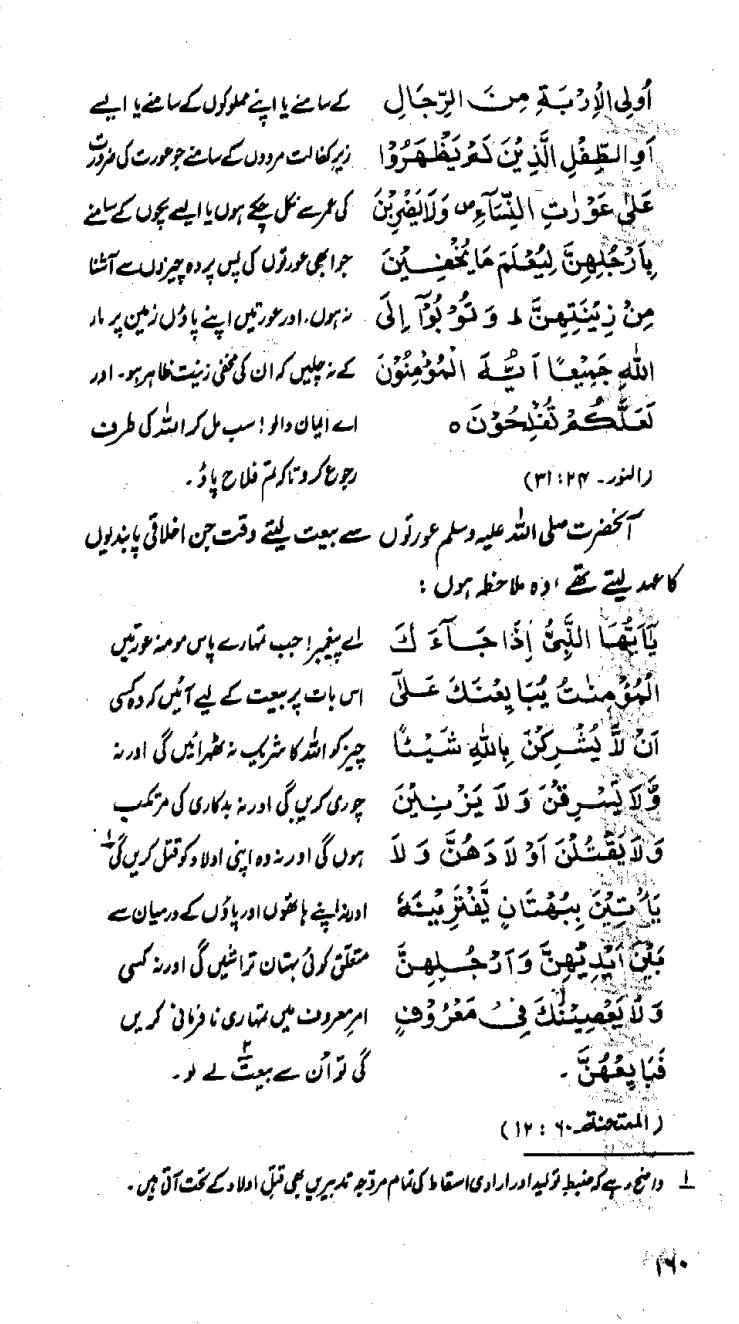 اُولِی الْاِرْبَةِ مِنَ الرِّجَالِ
اَوِ الطِّفْلِ الَّذِیْنَ لَمْ یَظْهَرُوْا
عَلٰی عَوْرٰتِ النِّسَآءِ ص وَلَا یَضْرِبْنَ
بِاَرْجُلِهِنَّ لِیُعْلَمَ مَا یُخْفِیْنَ
مِنْ زِیْنَتِهِنَّ ط وَ تُوْبُوْآ اِلَی
اللّٰهِ جَمِیْعًا اَیُّهَ الْمُؤْمِنُوْنَ
لَعَلَّکُمْ تُفْلِحُوْنَ ه
(النور۔ ۲۴ : ۳۱)
کے سامنے یا اپنے مملوکوں کے سامنے یا ایسے
زیر کفالت مردوں کے سامنے جو عورت کی ضرورت
کی عمر سے نکل چکے ہوں یا ایسے بچوں کے سامنے
جو ابھی عورتوں کی پس پردہ چیزوں سے آشنا
نہ ہوں۔ اور عورتیں اپنے پاؤں زمین پر مار
کے نہ چلیں کہ ان کی مخفی زینت ظاہر ہو۔ اور
اے ایمان والو! سب مل کر اللہ کی طرف
رجوع کرو تاکہ تم فلاح پاؤ۔
آنحضرت صلی اللہ علیہ وسلم عورتوں سے بیعت لیتے وقت جن اخلاقی پابندیوں
کا عہد لیتے تھے، وہ ملاحظہ ہوں :
یٰٓاَیُّهَا النَّبِیُّ اِذَا جَآءَ كَ
الْمُؤْمِنٰتُ یُبَایِعْنَكَ عَلٰٓی
اَنْ لَّا یُشْرِکْنَ بِاللّٰهِ شَیْئًا
وَّلَا یَسْرِقْنَ وَ لَا یَزْنِیْنَ
وَلَا یَقْتُلْنَ اَوْ لَا دَهُنَّ وَ لَا
یَاْتِیْنَ بِبُهْتَانٍ یَّفْتَرِیْنَهٗ
بَیْنَ اَیْدِیْهِنَّ وَاَرْجُلِهِنَّ
وَ لَا یَعْصِیْنَكَ فِیْ مَعْرُوْفٍ
فَبَایِعْهُنَّ ۔
(الممتحنة۔ ۶۰ : ۱۲)
اے پیغمبر! جب تمہارے پاس مومنہ عورتیں
اس بات پر بیعت کے لیے آئیں کہ وہ کسی
چیز کو اللہ کا شریک نہ ٹھہرائیں گی اور نہ
چوری کریں گی اور نہ بدکاری کی مرتکب
ہوں گی اور نہ وہ اپنی اولاد کو قتل کریں گی۱
اور نہ اپنے ہاتھوں اور پاؤں کے درمیان سے
متعلق کوئی بہتان تراشیں گی اور نہ کسی
امر معروف میں تمہاری نافرمانی کریں
گی تو اُن سے بیعت۲ لے لو۔
۱ واضح رہے کہ ضبطِ تولید اور ارادی اسقاط کی تمام مروّجہ تدبیریں بھی قتلِ اولاد کے تحت آتی ہیں۔
۱۶۰